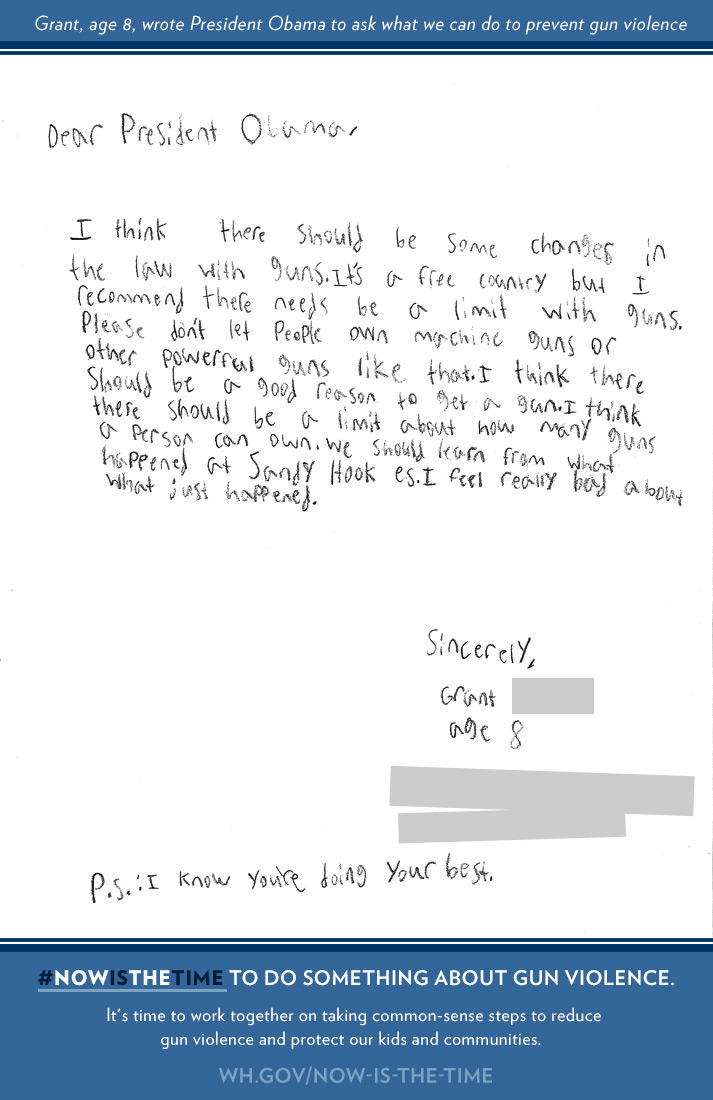 Grant, age 8, wrote President Obama to ask what we can do to prevent gun violence
Dear President Obama,
I think there should be some changes in
the law with guns. It's a free country but I
recommend there needs be a limit with guns.
Please don't let People own machine guns or
other powerful guns like that. I think there
should be a good reason to get a gun. I think
there should be a limit about how many guns
a person can own. We should learn from what
happened at Sandy Hook es. I feel really bad about
what just happened.
Sincerely,
Grant
age 8
P.S.: I know you're doing your best.
#NOWISTHETIME TO DO SOMETHING ABOUT GUN VIOLENCE.
It's time to work together on taking common-sense steps to reduce
gun violence and protect our kids and communities.
WH.GOV/NOW-IS-THE-TIME